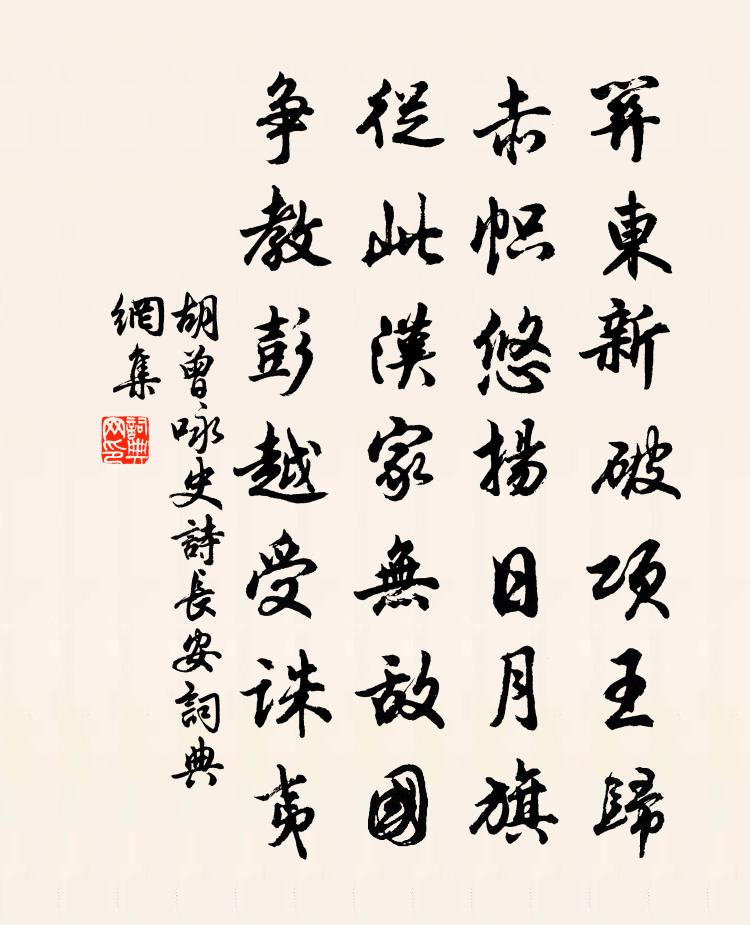 關東新破项王歸
赤帜悠揚日月旗
從此漢家無敌國
争教彭越受诛夷
胡曾咏史詩長安詞典
網集
詞典
网印